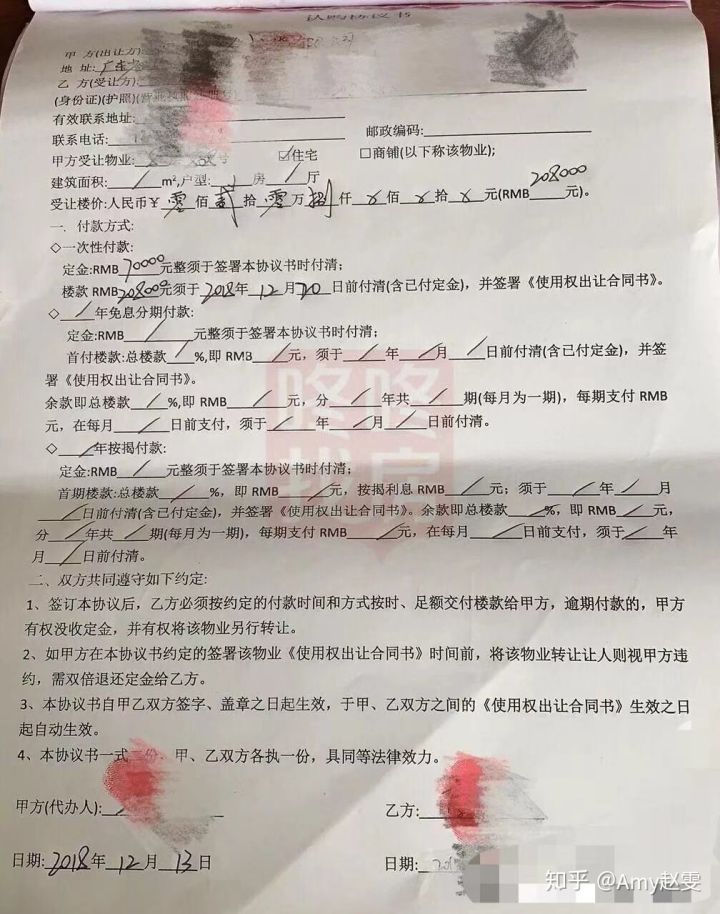 认购协议书
甲 方(出让方):
地 址:广东省
乙 方(受让方):
(身份证)(护照)(营业执照
有效联系地址:
联系电话:
邮政编码:
甲方受让物业: 号 ☑住宅 □商铺(以下称该物业);
建筑面积: / m²,户型: / 房 / 厅
受让楼价:人民币¥ 零 佰 贰 拾 零 万 捌 仟 x 佰 x 拾 x 元(RMB 208000 元)。
一. 付款方式:
◇一次性付款:
定金:RMB 70000 元整须于签署本协议书时付清;
楼款 RMB 208000 元须于 2018 年 12 月 20 日前付清(含已付定金),并签署《使用权出让合同书》。
◇ / 年免息分期付款:
定金:RMB / 元整须于签署本协议书时付清;
首付楼款:总楼款 / %,即 RMB / 元,须于 / 年 / 月 / 日前付清(含已付定金),并签
署《使用权出让合同书》。
余款即总楼款 / %,即 RMB / 元,分 / 年共 / 期(每月为一期),每期支付 RMB
元,在每月 / 日前支付,须于 / 年 / 月 / 日前付清。
◇ / 年按揭付款:
定金:RMB / 元整须于签署本协议书时付清;
首期楼款:总楼款 / %,即 RMB / 元,按揭利息 RMB / 元;须于 / 年 / 月
/ 日前付清(含已付定金),并签署《使用权出让合同书》。余款即总楼款 / %,即 RMB / 元,
分 / 年共 / 期(每月为一期),每期支付 RMB / 元,在每月 / 日前支付,须于 / 年
月 / 日前付清。
二、双方共同遵守如下约定:
1、签订本协议后,乙方必须按约定的付款时间和方式按时、足额交付楼款给甲方,逾期付款的,甲方
有权没收定金,并有权将该物业另行转让。
2、如甲方在本协议书约定的签署该物业《使用权出让合同书》时间前,将该物业转让让人则视甲方违
约,需双倍退还定金给乙方。
3、本协议书自甲乙双方签字、盖章之日起生效,于甲、乙双方之间的《使用权出让合同书》生效之日
起自动生效。
4、本协议书一式二份,甲、乙双方各执一份,具同等法律效力。
甲方(代办人):
乙方:
日期: 2018 年 12 月 13 日
日期: 201
咚咚找房
知乎 @Amy赵雯